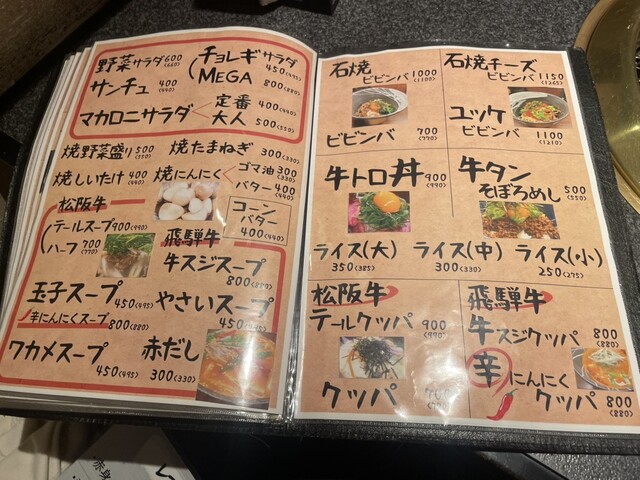 野菜サラダ 600 (660)
チョレギサラダ 450(495)
MEGA 800(880)
サンチュ 400 (440)
マカロニサラダ 定番 400(440)
大人 500(550)
焼野菜盛り 500 (550)
焼たまねぎ 300(330)
焼しいたけ 400 (440)
焼にんにく ゴマ油 300 (330)
バター 400 (440)
コーンバター 400(440)
松阪牛
テールスープ 900(990)
ハーフ 700 (770)
飛騨牛
牛スジスープ 800(880)
玉子スープ 450(495)
やさいスープ 450
辛にんにくスープ 800(880)
ワカメスープ 450(495)
赤だし 300(330)
石焼ビビンバ 1000 (1100)
石焼チーズビビンバ 1150 (1265)
ビビンバ 700 (770)
ユッケビビンバ 1100 (1210)
牛トロ丼 900 (990)
牛タンそぼろめし 500 (550)
ライス(大) 350(385)
ライス(中) 300(330)
ライス(小) 250(275)
松阪牛
テールクッパ 900 (990)
飛騨牛
牛スジクッパ 800 (880)
クッパ
辛にんにくクッパ 800 (880)
赤身